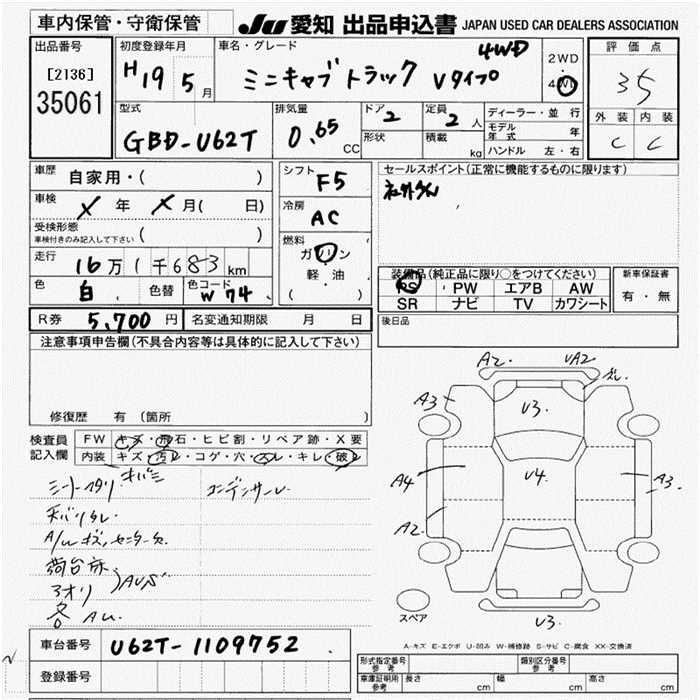 車内保管・守衛保管
JU 愛知 出品申込書 JAPAN USED CAR DEALERS ASSOCIATION
出品番号
[2136]
35061
初度登録年月
H19 5月
車名・グレード
4WD
ミニキャブトラック Vタイプ
2WD
4WD
評価点
35
外装 内装
C C
型式
GBD-U62T
排気量
0.65 CC
ドア 2
形状
定員 2人
積載 kg
ディーラー・並行
モデル年式 年
ハンドル 左・右
車歴 自家用・( )
車検 X年 X月( 日)
受検形態
車検付きのみ記入して下さい ( )
走行 16万1千683km
色 白 色替 色コード W74
R券 5,700円 名変通知期限 月 日
シフト F5
冷房 AC
燃料
ガソリン
軽油
( )
セールスポイント(正常に機能するものに限ります)
装備品(純正品に限り○をつけてください)
PS PW エアB AW
SR ナビ TV カワシート
新車保証書
有・無
後日品
注意事項申告欄(不具合内容等は具体的に記入して下さい)
修復歴 有 (箇所 )
検査員記入欄
FW キズ・飛石・ヒビ割・リペア跡・X要
内装 キズ・汚レ・コゲ・穴・スレ・キレ・破レ
コンデンサーレ
A2 UA2
A3
V3
A4
V4
A3
A2
V3
スペア
A-キズ E-エクボ U-凹み W-補修跡 S-サビ C-腐食 XX-交換済
車台番号 U62T-1109752
登録番号
形式指定番号 参考
類別区分番号 参考
車庫証明用 参考 長さ cm 幅 cm 高さ cm